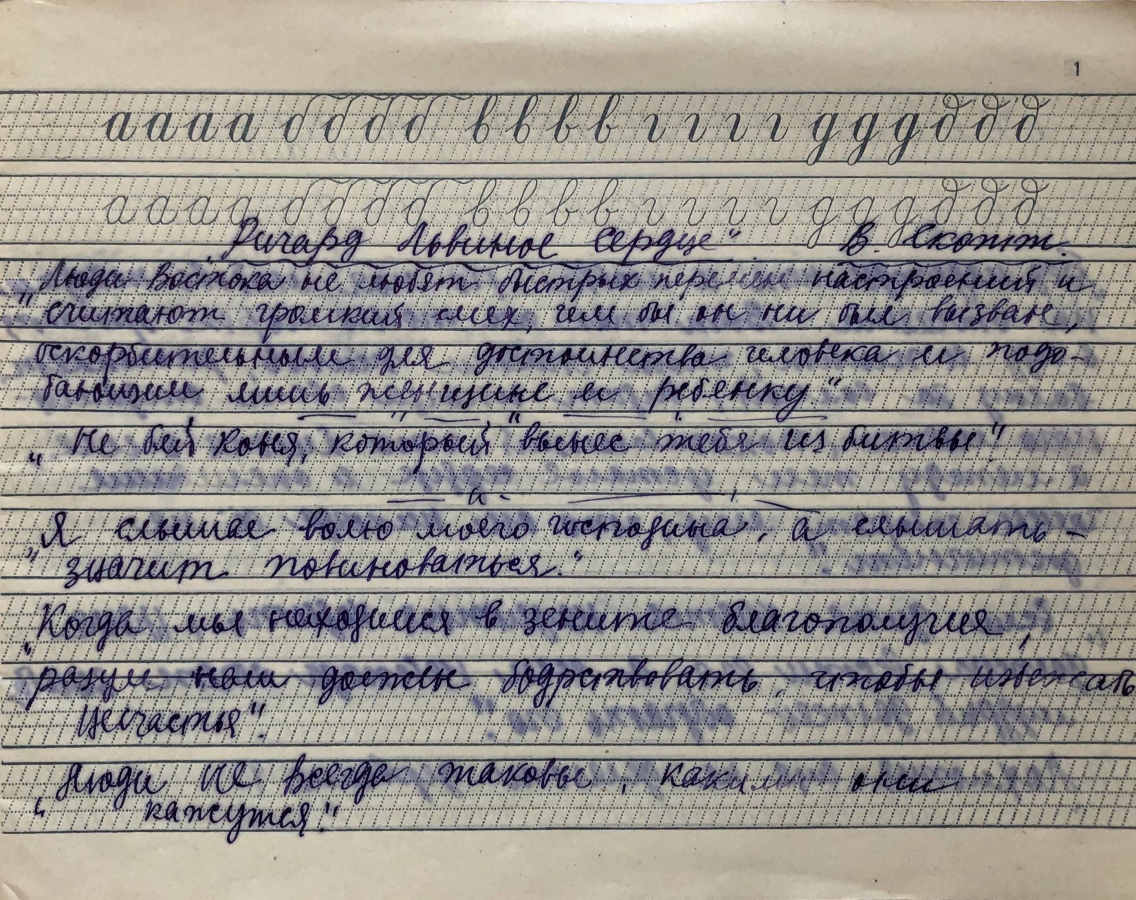 1
а а а а б б б б в в в в г г г г д д д д д д
а а а а б б б б в в в в г г г г д д д д д д
"Ричард Львиное Сердце" В. Скотт.
"Люди Востока не любят быстрых перемен настроений и
считают громкий смех, чем бы он ни был вызван,
оскорбительным для достоинства человека и подо-
бающим лишь женщине и ребенку"
"Не бей коня, который вынес тебя из битвы"!
"Я слышал волю моего господина, а слышать -
значит повиноваться."
"Когда мы находимся в зените благополучия,
разум наш должен бодрствовать, чтобы избежать
несчастья".
"Люди не всегда таковы, какими они
кажутся".